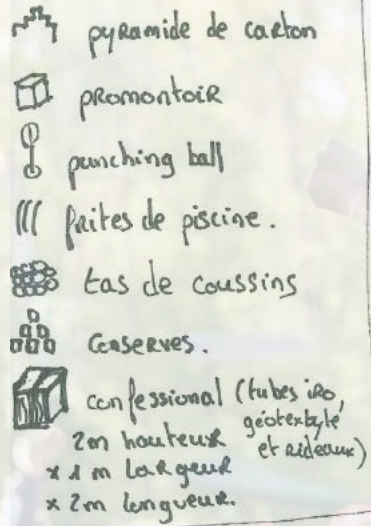 pyramide de carton
promontoir
punching ball
frites de piscine.
tas de coussins
conserves.
confessional (tubes iro,
géotextyle
2m hauteur et rideaux)
x 1 m largeur
x 2m longueur.